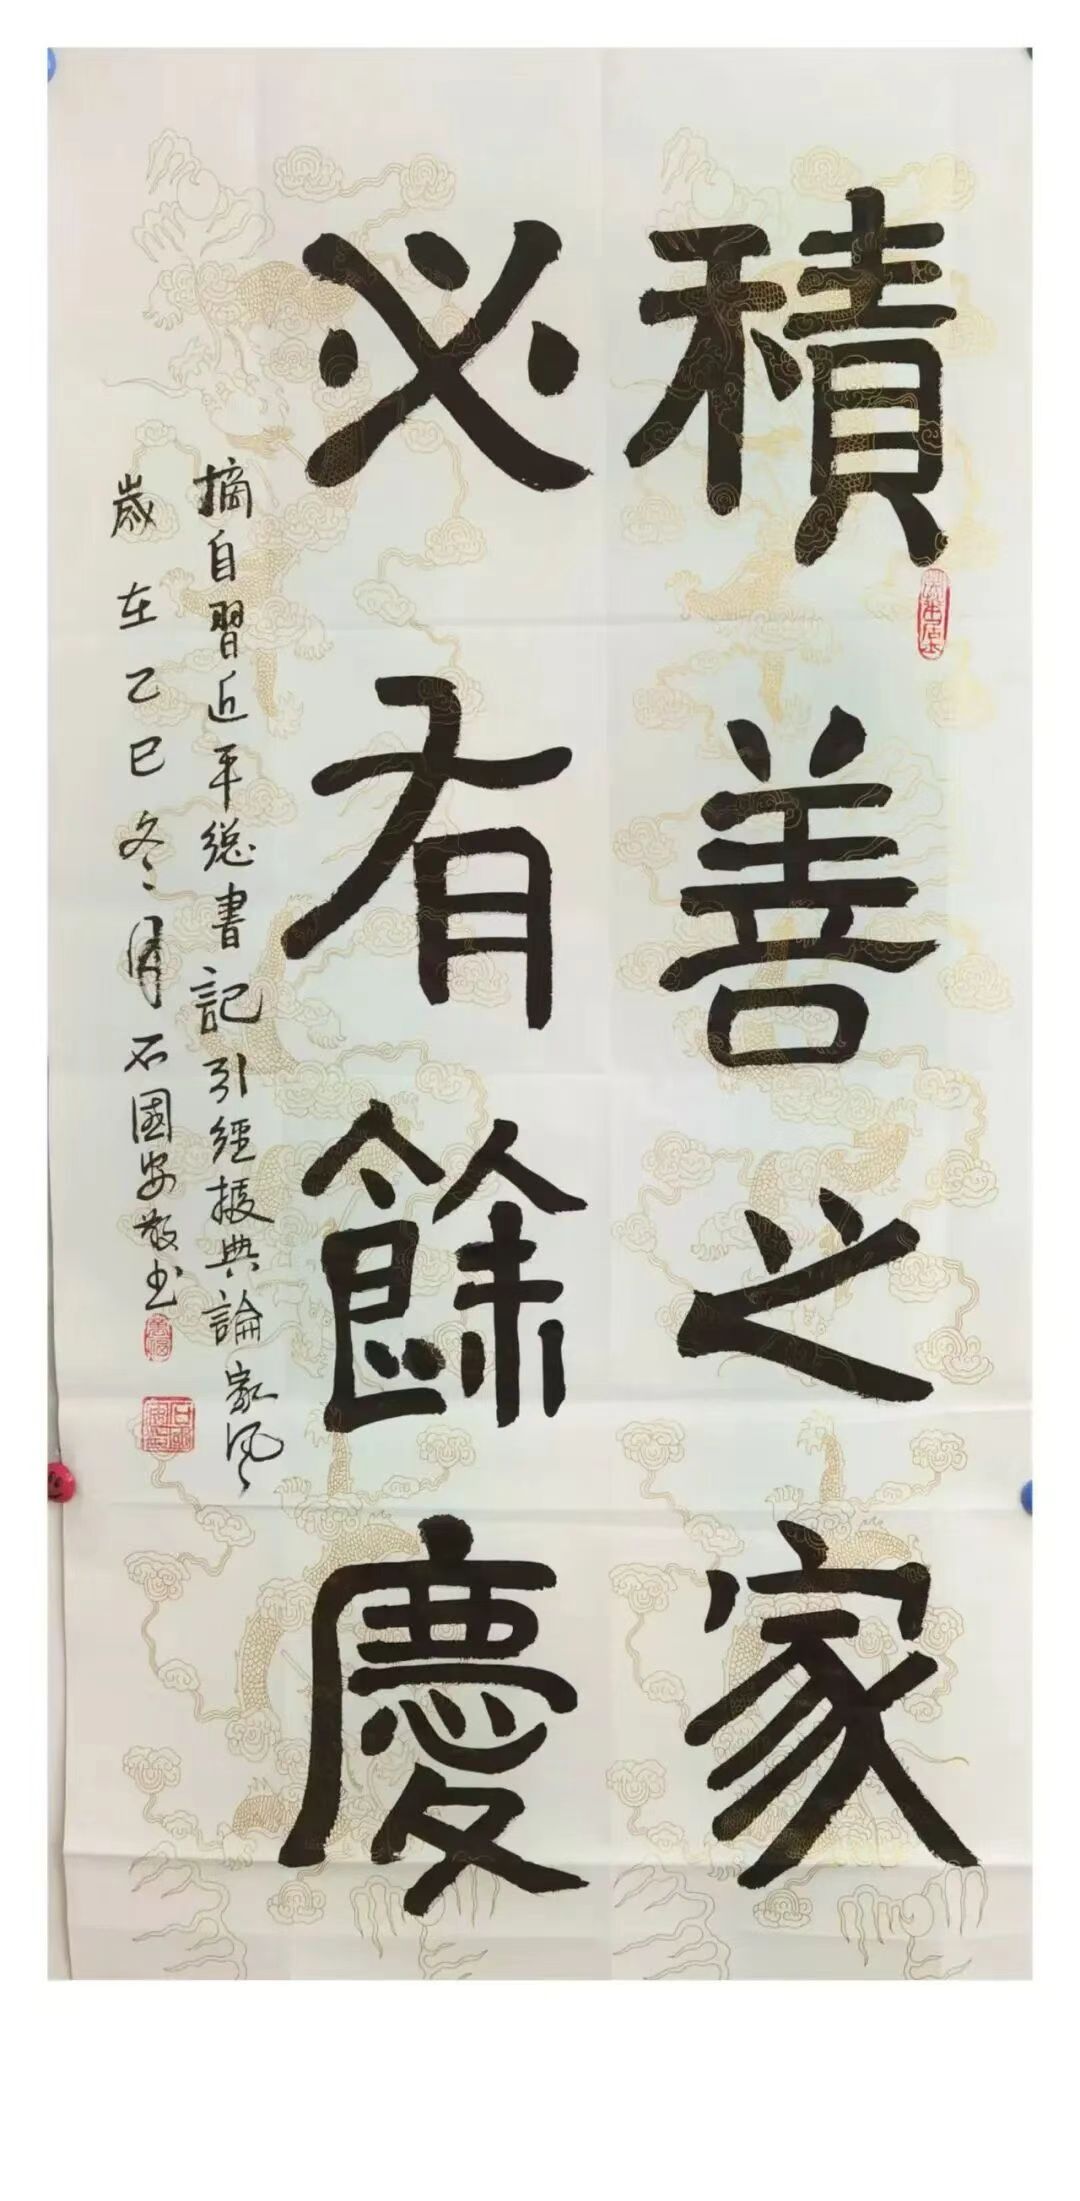 積善之家
必有餘慶
摘自習近平總書記引經據典論家風
歲在乙巳冬月石國安敬书